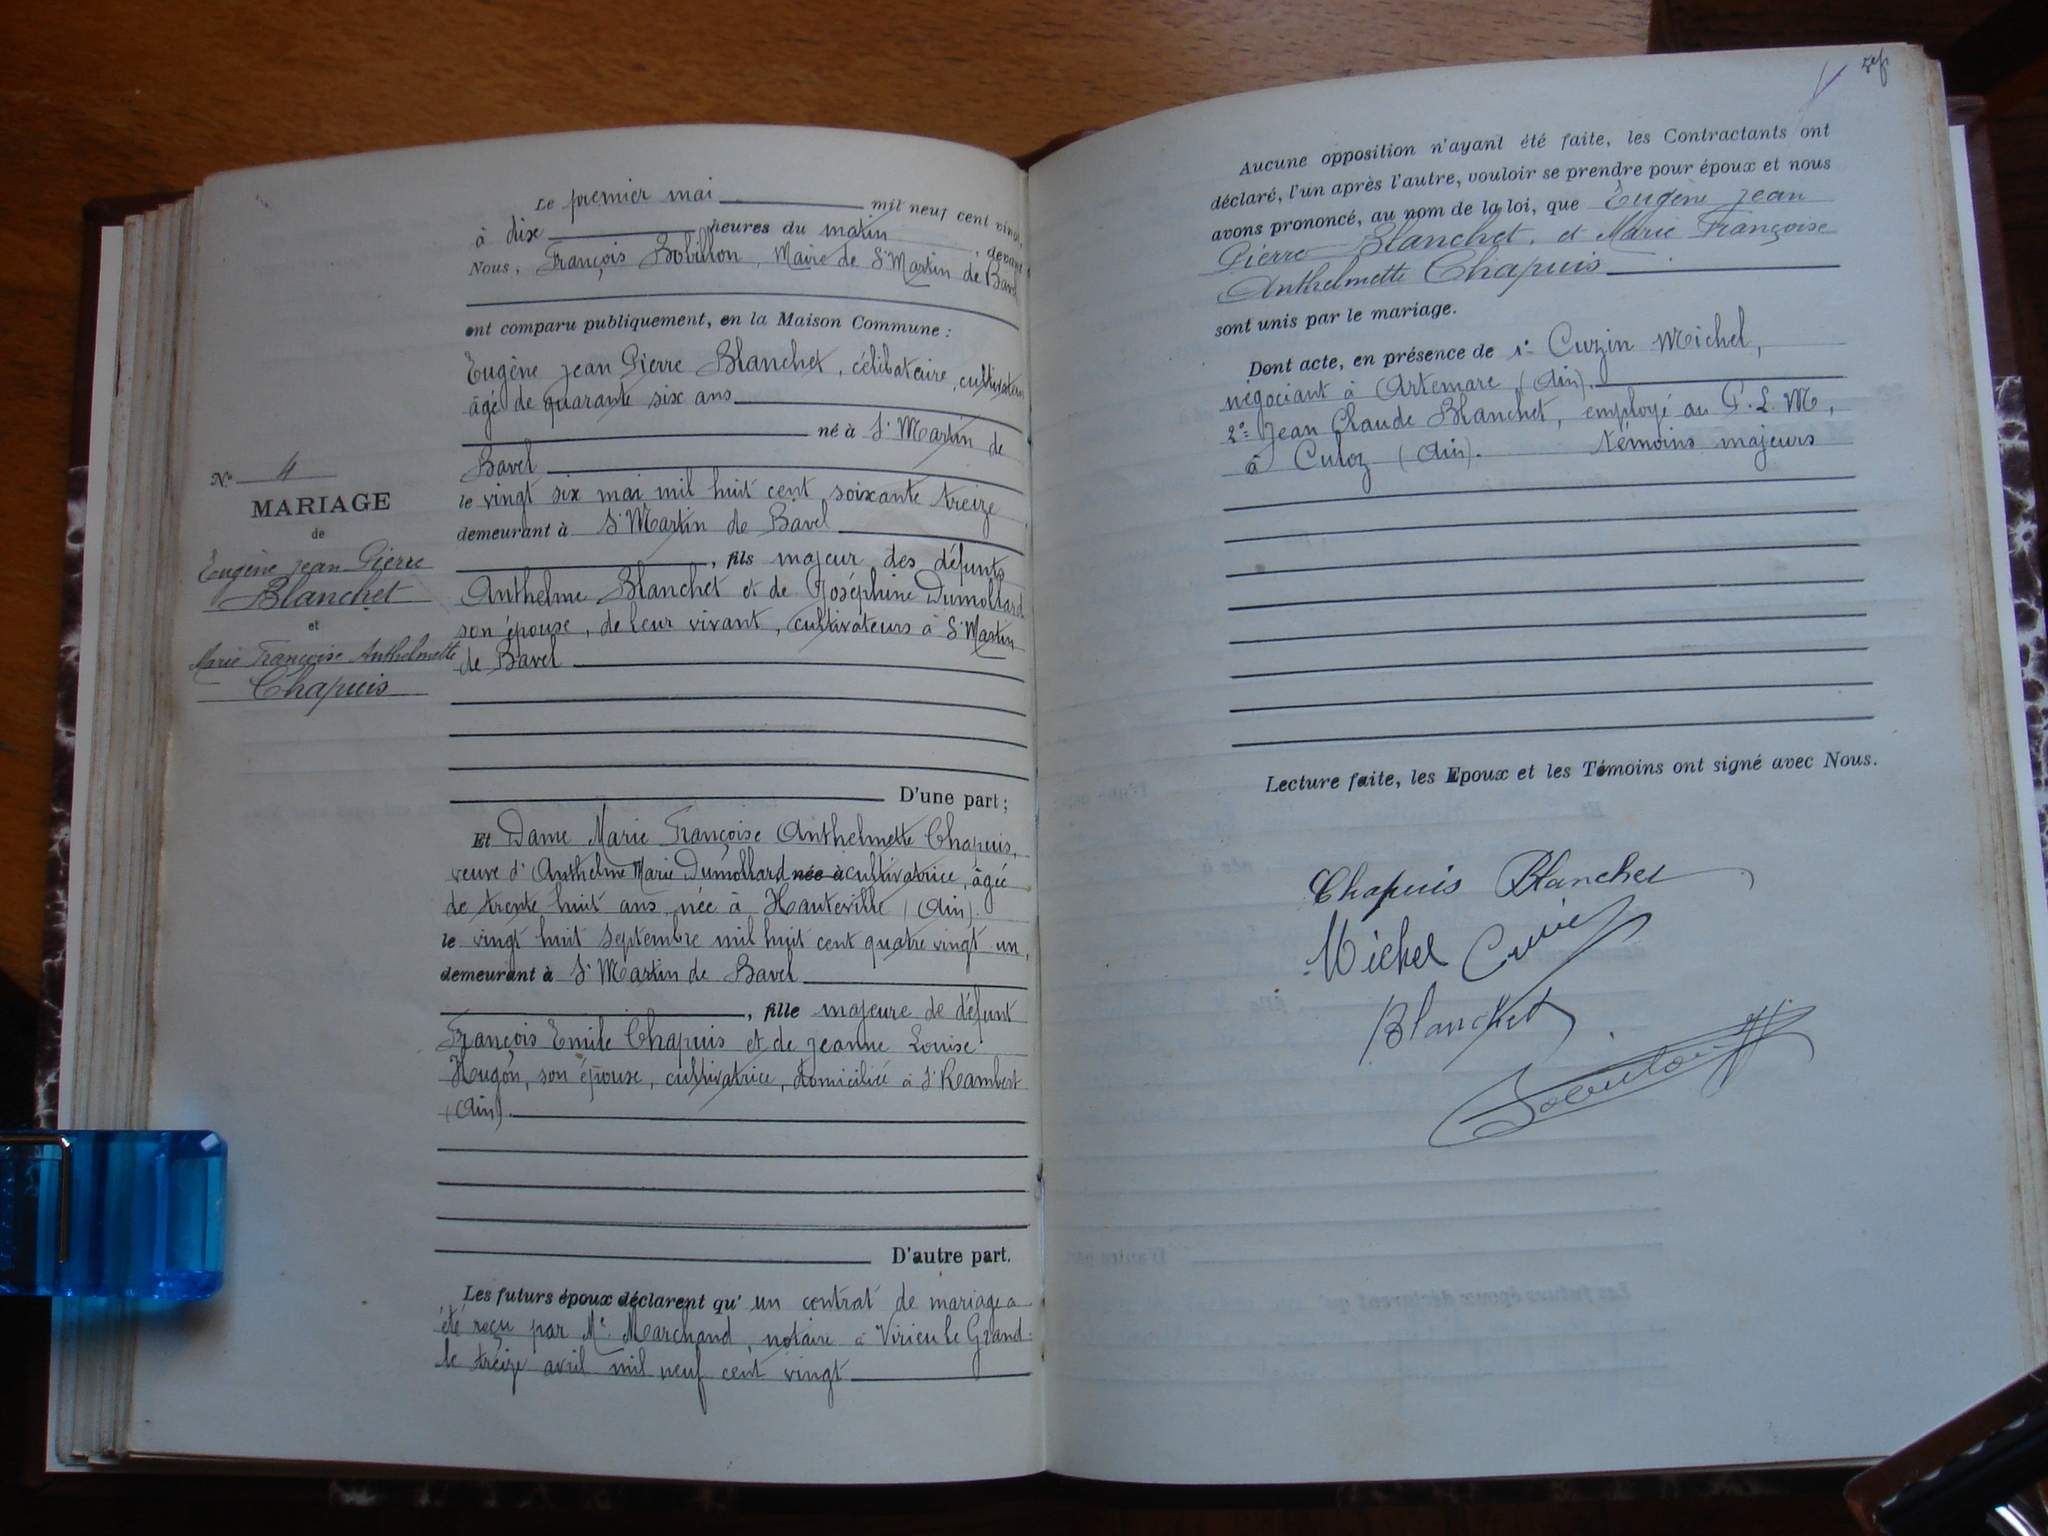 Le premier mai mil neuf cent vingt,
à dix heures du matin, devant
Nous, François Bobillon, Maire de St Martin de Bavel
ont comparu publiquement, en la Maison Commune :
Eugène Jean Pierre Blanchet, célibataire, cultivateur
âgé de quarante six ans
né à St Martin de
Bavel
le vingt six mai mil huit cent soixante treize
demeurant à St Martin de Bavel
, fils majeur des défunts
Anthelme Blanchet et de Joséphine Dumollard
son épouse, de leur vivant, cultivateurs à St Martin
de Bavel
D'une part ;
Et Dame Marie Françoise Anthelmette Chapuis,
veuve d'Anthelme Marie Dumollard née à cultivatrice, âgée
de trente huit ans, née à Hauteville (Ain).
le vingt huit septembre mil huit cent quatre vingt un,
demeurant à St Martin de Bavel
, fille majeure de défunt
François Emile Chapuis et de Jeanne Louise
Hugon, son épouse, cultivatrice, domiciliée à St Rambert
(Ain).
D'autre part.
Les futurs époux déclarent qu'un contrat de mariage a
été reçu par Me Marchand, notaire à Virieu le Grand
le treize avril mil neuf cent vingt
No 4
MARIAGE
de
Eugène Jean Pierre
Blanchet
et
Marie Françoise Anthelmette
Chapuis
Aucune opposition n'ayant été faite, les Contractants ont
déclaré, l'un après l'autre, vouloir se prendre pour époux et nous
avons prononcé, au nom de la loi, que Eugène Jean
Pierre Blanchet, et Marie Françoise
Anthelmette Chapuis
sont unis par le mariage.
Dont acte, en présence de 1° Cuzin Michel,
négociant à Artemare (Ain).
2° Jean Claude Blanchet, employé au P.L.M,
à Culoz (Ain). témoins majeurs
Lecture faite, les Epoux et les Témoins ont signé avec Nous.
Chapuis Blanchet
Michel Cuzin
Blanchet